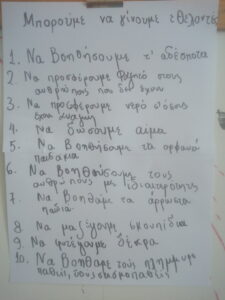 Μπορούμε να γίνουμε εθελοντές
1. Να βοηθήσουμε τ' αδέσποτα
2. Να προσφέρουμε φαγητό στους
ανθρώπους που δεν έχουν
3. Να προσφέρουμε νερό σ'όσους
έχουν ανάγκη
4. Να δώσουμε αίμα
5. Να βοηθήσουμε τα ορφανά
παιδάκια
6. Να βοηθούσουμε τους
ανθρώπους με ιδιαιτερότητες
7. Να βοηθάμε τα άρρωστα
παιδιά
8 Να μαζέψουμε σκουπίδια
9. Να φυτέψουμε δέντρα
10. Να βοηθάμε τους πλημμυρο
παθείς, τους σεισμοπαθείς